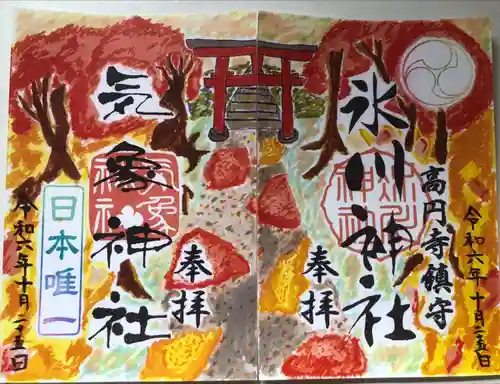 令和六年十月二五日
高円寺鎮守
氷川神社
奉拝
奉拝
気象神社
日本唯一
令和六年十月二五日